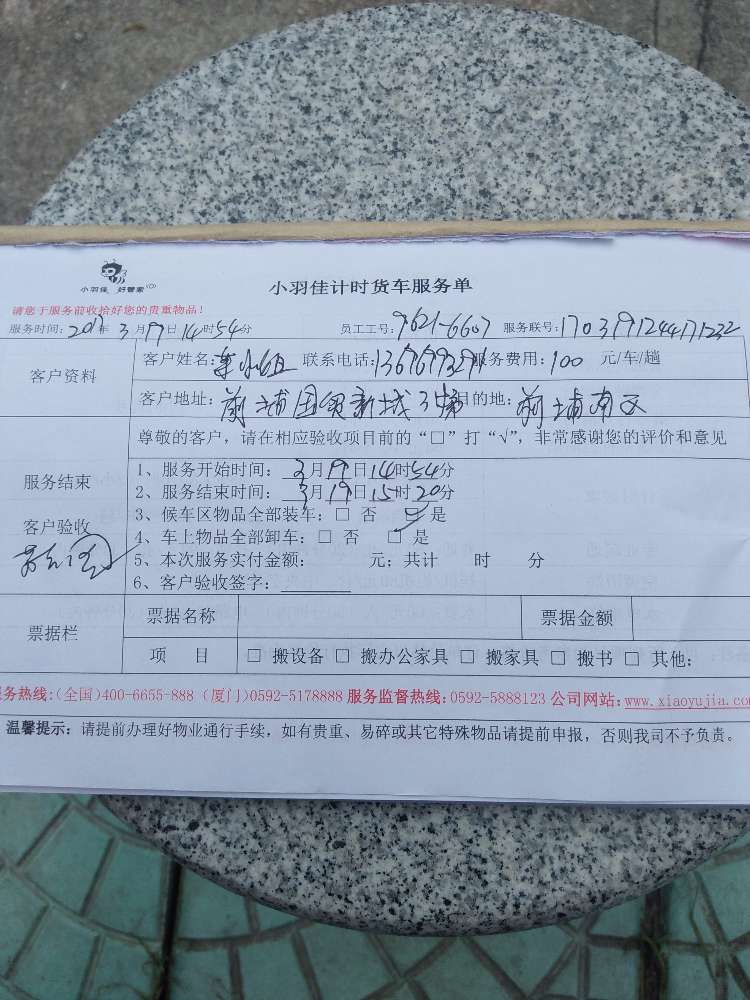 小羽佳 好管家
小羽佳计时货车服务单
请您于服务前收拾好您的贵重物品！
服务时间：2017年 3月19日14时54分 员工工号：9621-6607 服务联号：170319124471232
客户资料
客户姓名： 联系电话： 服务费用：100 元/车/趟
客户地址：前埔国贸新城 目的地：前埔南区
尊敬的客户，请在相应验收项目前的“□”打“√”，非常感谢您的评价和意见
服务结束
客户验收
1、服务开始时间：3月19日14时54分
2、服务结束时间：3月19日15时20分
3、候车区物品全部装车：□ 否 □ 是
4、车上物品全部卸车：□ 否 □ 是
5、本次服务实付金额： 元；共计 时 分
6、客户验收签字：
票据栏
票据名称 票据金额
项 目 □ 搬设备 □ 搬办公家具 □ 搬家具 □ 搬书 □ 其他：
务热线：(全国)400-6655-888 (厦门)0592-5178888 服务监督热线：0592-5888123 公司网站：www.xiaoyujia.com
温馨提示：请提前办理好物业通行手续，如有贵重、易碎或其它特殊物品请提前申报，否则我司不予负责。